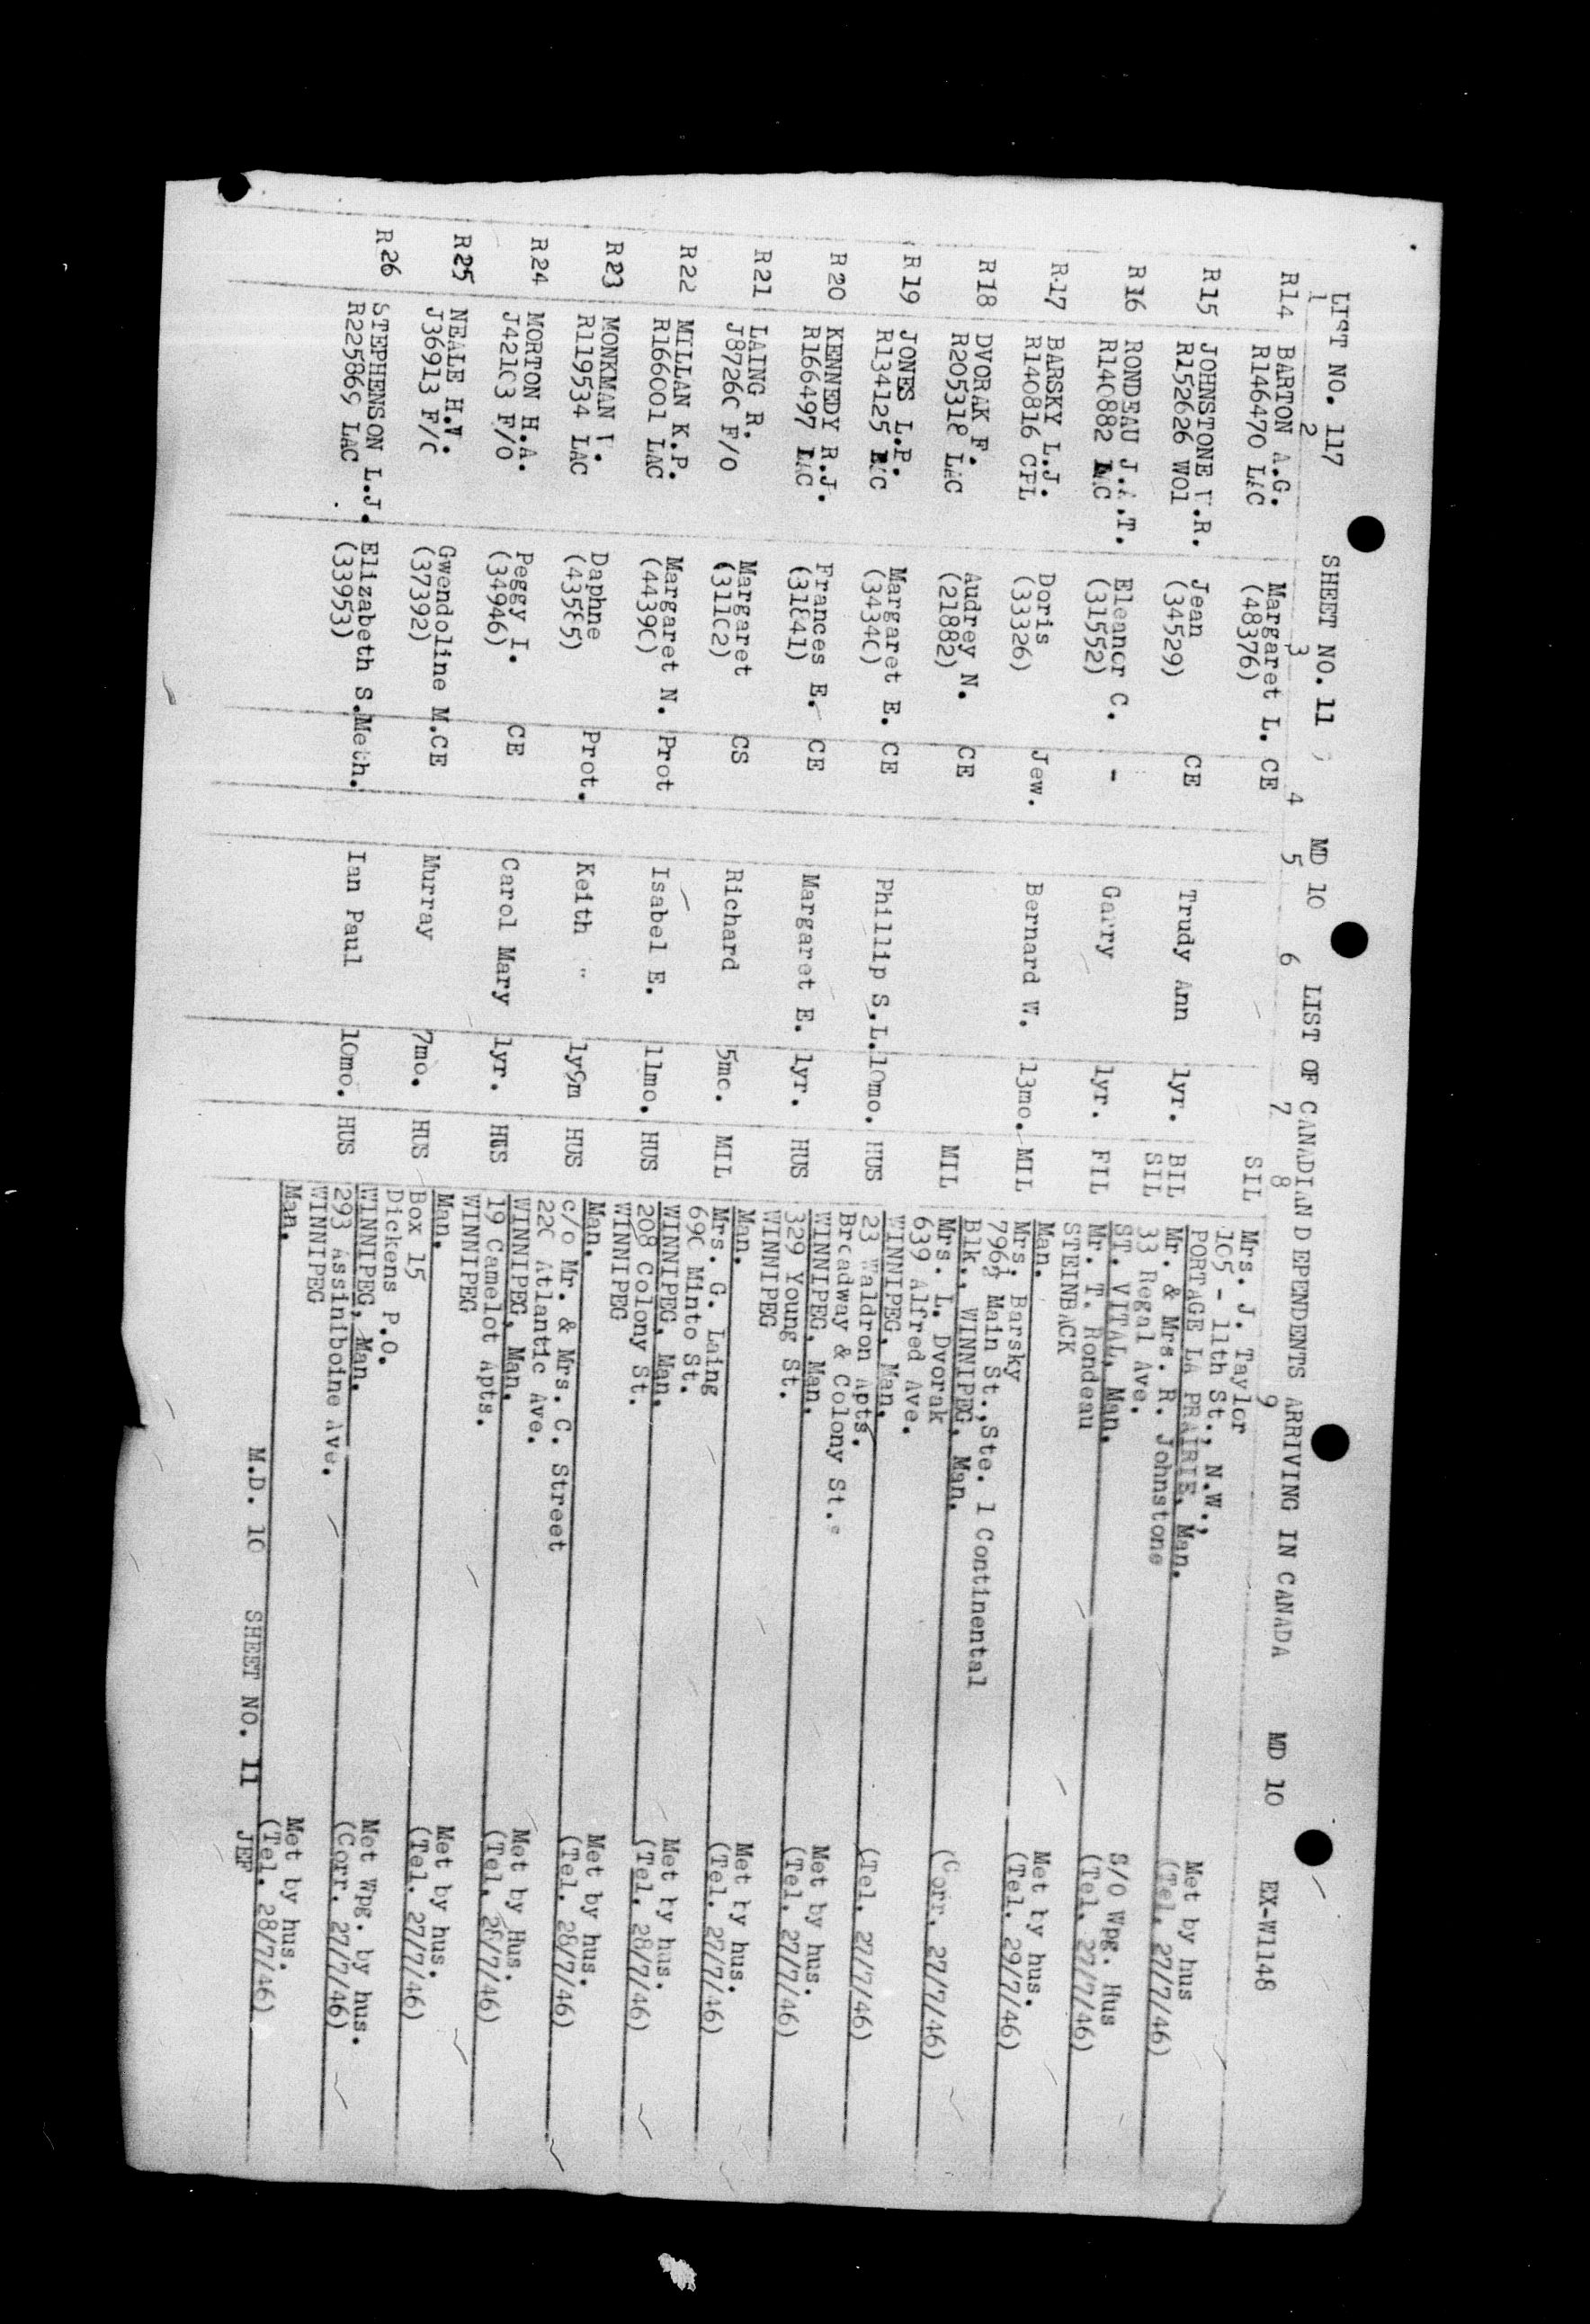 LIST NO. 117 SHEET NO. 11 MD 10 LIST OF CANADIAN DEPENDENTS ARRIVING IN CANADA MD 10 EX-W1148
1 2 3 4 5 6 7 8 9
R14 BARTON A.G. Margaret L. CE SIL Mrs. J. Taylor
R146470 LAC (48376) 105 - 11th St., N.W., Met by hus
PORTAGE LA PRAIRIE, Man. (Tel. 27/7/46)
R15 JOHNSTONE W.R. Jean CE Trudy Ann 1yr. BIL Mr. & Mrs. R. Johnstone
R152626 WO1 (34529) SIL 33 Regal Ave. S/O Wpg. Hus
ST. VITAL, Man. (Tel. 27/7/46)
R16 RONDEAU J.A.T. Eleanor C. - Garry 1yr. FIL Mr. T. Rondeau
R140882 LAC (31552) STEINBACK Met by hus.
Man. (Tel. 29/7/46)
R17 BARSKY L.J. Doris Jew. Bernard W. 13mo. MIL Mrs. Barsky
R140816 CPL (33326) 796½ Main St., Ste. 1 Continental
Blk., WINNIPEG, Man. (Corr. 27/7/46)
R18 DVORAK F. Audrey N. CE MIL Mrs. L. Dvorak
R205318 LAC (21882) 639 Alfred Ave.
WINNIPEG, Man. (Tel. 27/7/46)
R19 JONES L.P. Margaret E. CE Phillip S.L. 10mo. HUS 23 Waldron Apts.
R134125 LAC (34340) Broadway & Colony St.s Met by hus.
WINNIPEG, Man. (Tel. 27/7/46)
R20 KENNEDY R.J. Frances E. CE Margaret E. 1yr. HUS 329 Young St.
R166497 LAC (31841) WINNIPEG Met by hus.
Man. (Tel. 27/7/46)
R21 LAING R. Margaret CS Richard 5mo. MIL Mrs. G. Laing
J87260 F/O (31102) 690 Minto St. Met by hus.
WINNIPEG, Man. (Tel. 28/7/46)
R22 MILLAN K.P. Margaret N. Prot Isabel E. 11mo. HUS 208 Colony St.
R166001 LAC (44390) WINNIPEG Met by hus.
Man. (Tel. 28/7/46)
R23 MONKMAN V. Daphne Prot. Keith 1y9m HUS c/o Mr. & Mrs. C. Street
R119534 LAC (43585) 220 Atlantic Ave. Met by Hus.
WINNIPEG, Man. (Tel. 26/7/46)
R24 MORTON H.A. Peggy I. CE Carol Mary 1yr. HUS 19 Camelot Apts.
J42103 F/O (34946) WINNIPEG Met by hus.
Man. (Tel. 27/7/46)
R25 NEALE H.W. Gwendoline M. CE Murray 7mo. HUS Box 15
J36913 F/O (37392) Dickens P.O. Met Wpg. by hus.
WINNIPEG, Man. (Corr. 27/7/46)
R26 STEPHENSON L.J. Elizabeth S. Meth. Ian Paul 10mo. HUS 293 Assiniboine Ave.
R225869 LAC (33953) WINNIPEG Met by hus.
Man. (Tel. 28/7/46)
M.D. 10 SHEET NO. 11 JEF